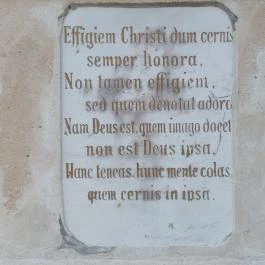 Effigiem Christi dum cernis
semper honora,
Non tamen effigiem,
sed quem denotat adora
Nam Deus est, quem imago docet
non est Deus ipsa,
Hanc teneas, hunc mente colas
quem cernis in ipsa.